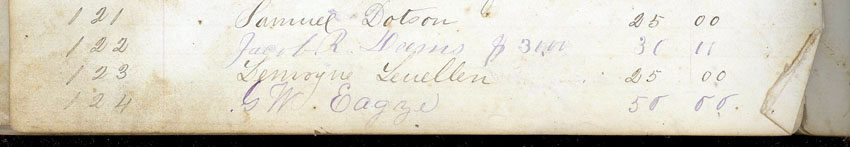 121 Samuel Dotson 25 00
122 Jacob R. 30
123 Lemoyne Leuellen 25 00
124 G W. Eagze 50 00